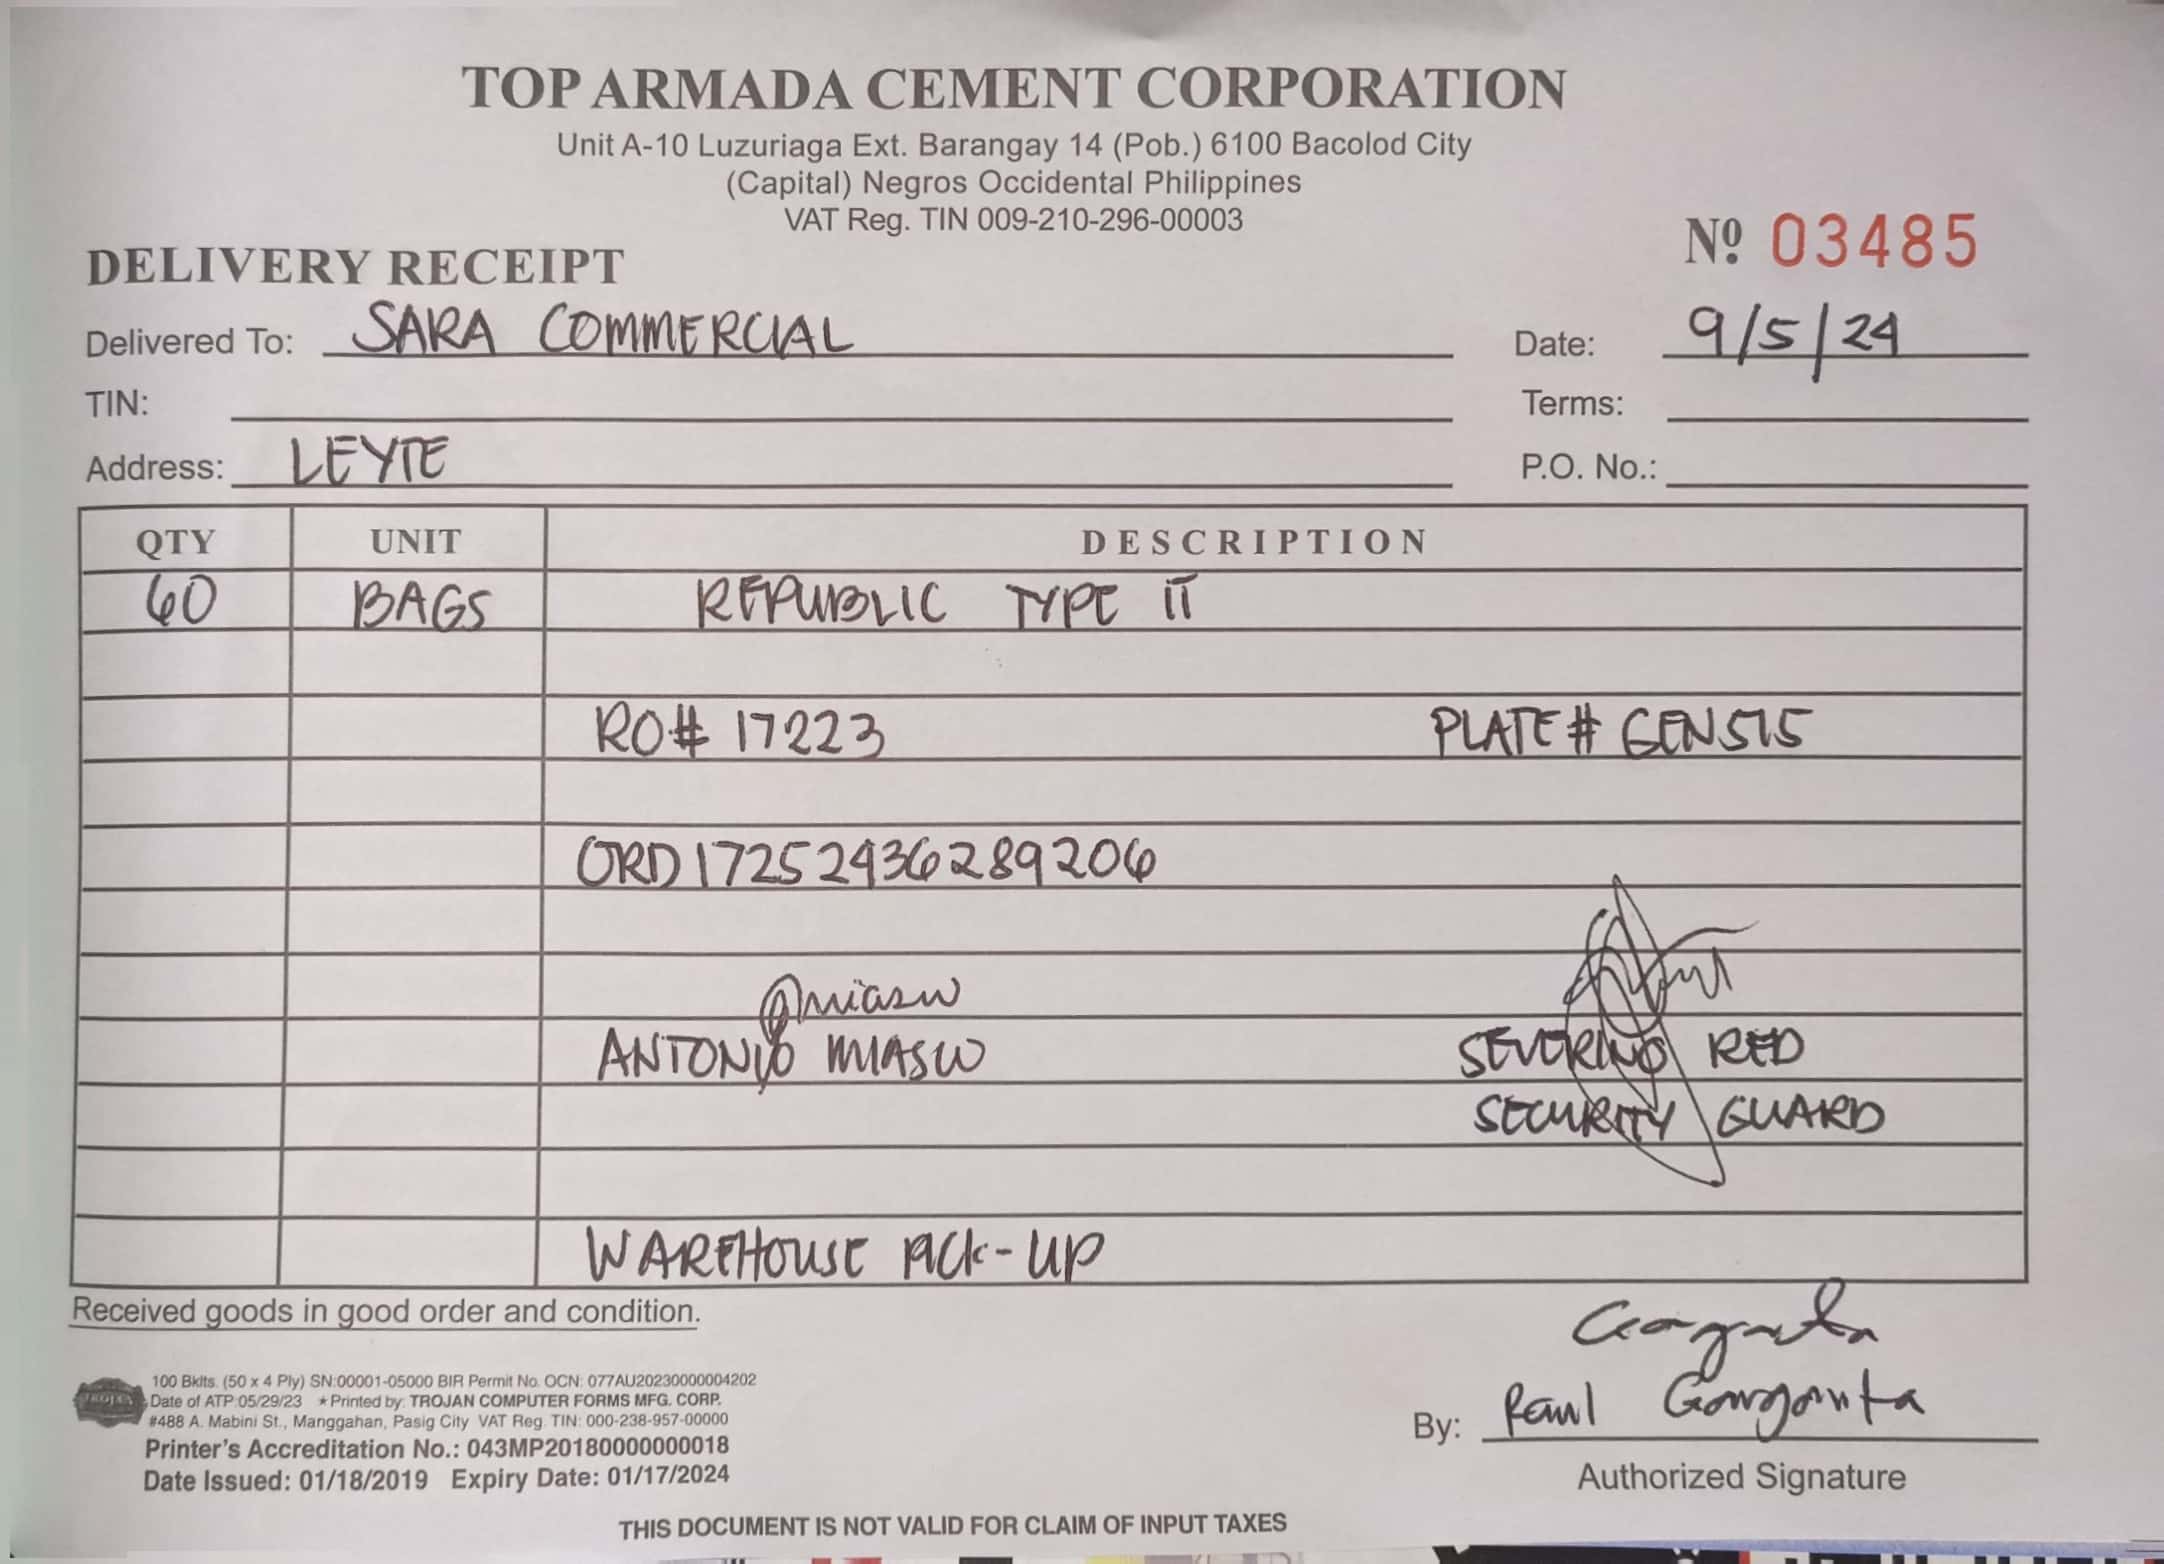 TOP ARMADA CEMENT CORPORATION
Unit A-10 Luzuriaga Ext. Barangay 14 (Pob.) 6100 Bacolod City
(Capital) Negros Occidental Philippines
VAT Reg. TIN 009-210-296-00003
Nº 03485
DELIVERY RECEIPT
Delivered To: SARA COMMERCIAL Date: 9/5/24
TIN: Terms:
Address: LEYTE P.O. No.:
QTY UNIT DESCRIPTION
60 BAGS REPUBLIC TYPE II
RO# 17223 PLATE# GEN515
ORD17252436289206
ANTONIO MIASCO SEVERINO RED
SECURITY GUARD
WAREHOUSE PICK-UP
Received goods in good order and condition.
100 Bklts. (50 x 4 Ply) SN:00001-05000 BIR Permit No. OCN: 077AU20230000004202
Date of ATP:05/29/23 ★Printed by: TROJAN COMPUTER FORMS MFG. CORP.
#488 A. Mabini St., Manggahan, Pasig City VAT Reg. TIN: 000-238-957-00000
Printer's Accreditation No.: 043MP20180000000018
Date Issued: 01/18/2019 Expiry Date: 01/17/2024
By: Raul Gorgonita
Authorized Signature
THIS DOCUMENT IS NOT VALID FOR CLAIM OF INPUT TAXES